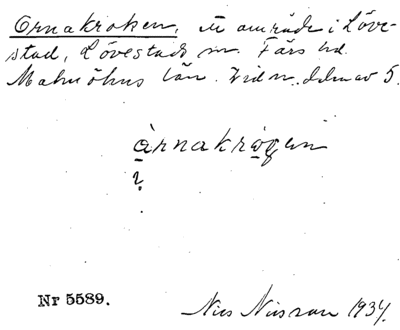 Ornakroken, ett område i Löve-
stad, Lövestads sn. Färs hd.
Malmöhus län. Vid n. delen av 5.
àrnakrògen
?
Nr 5589.
Nils Nilsson 1934.